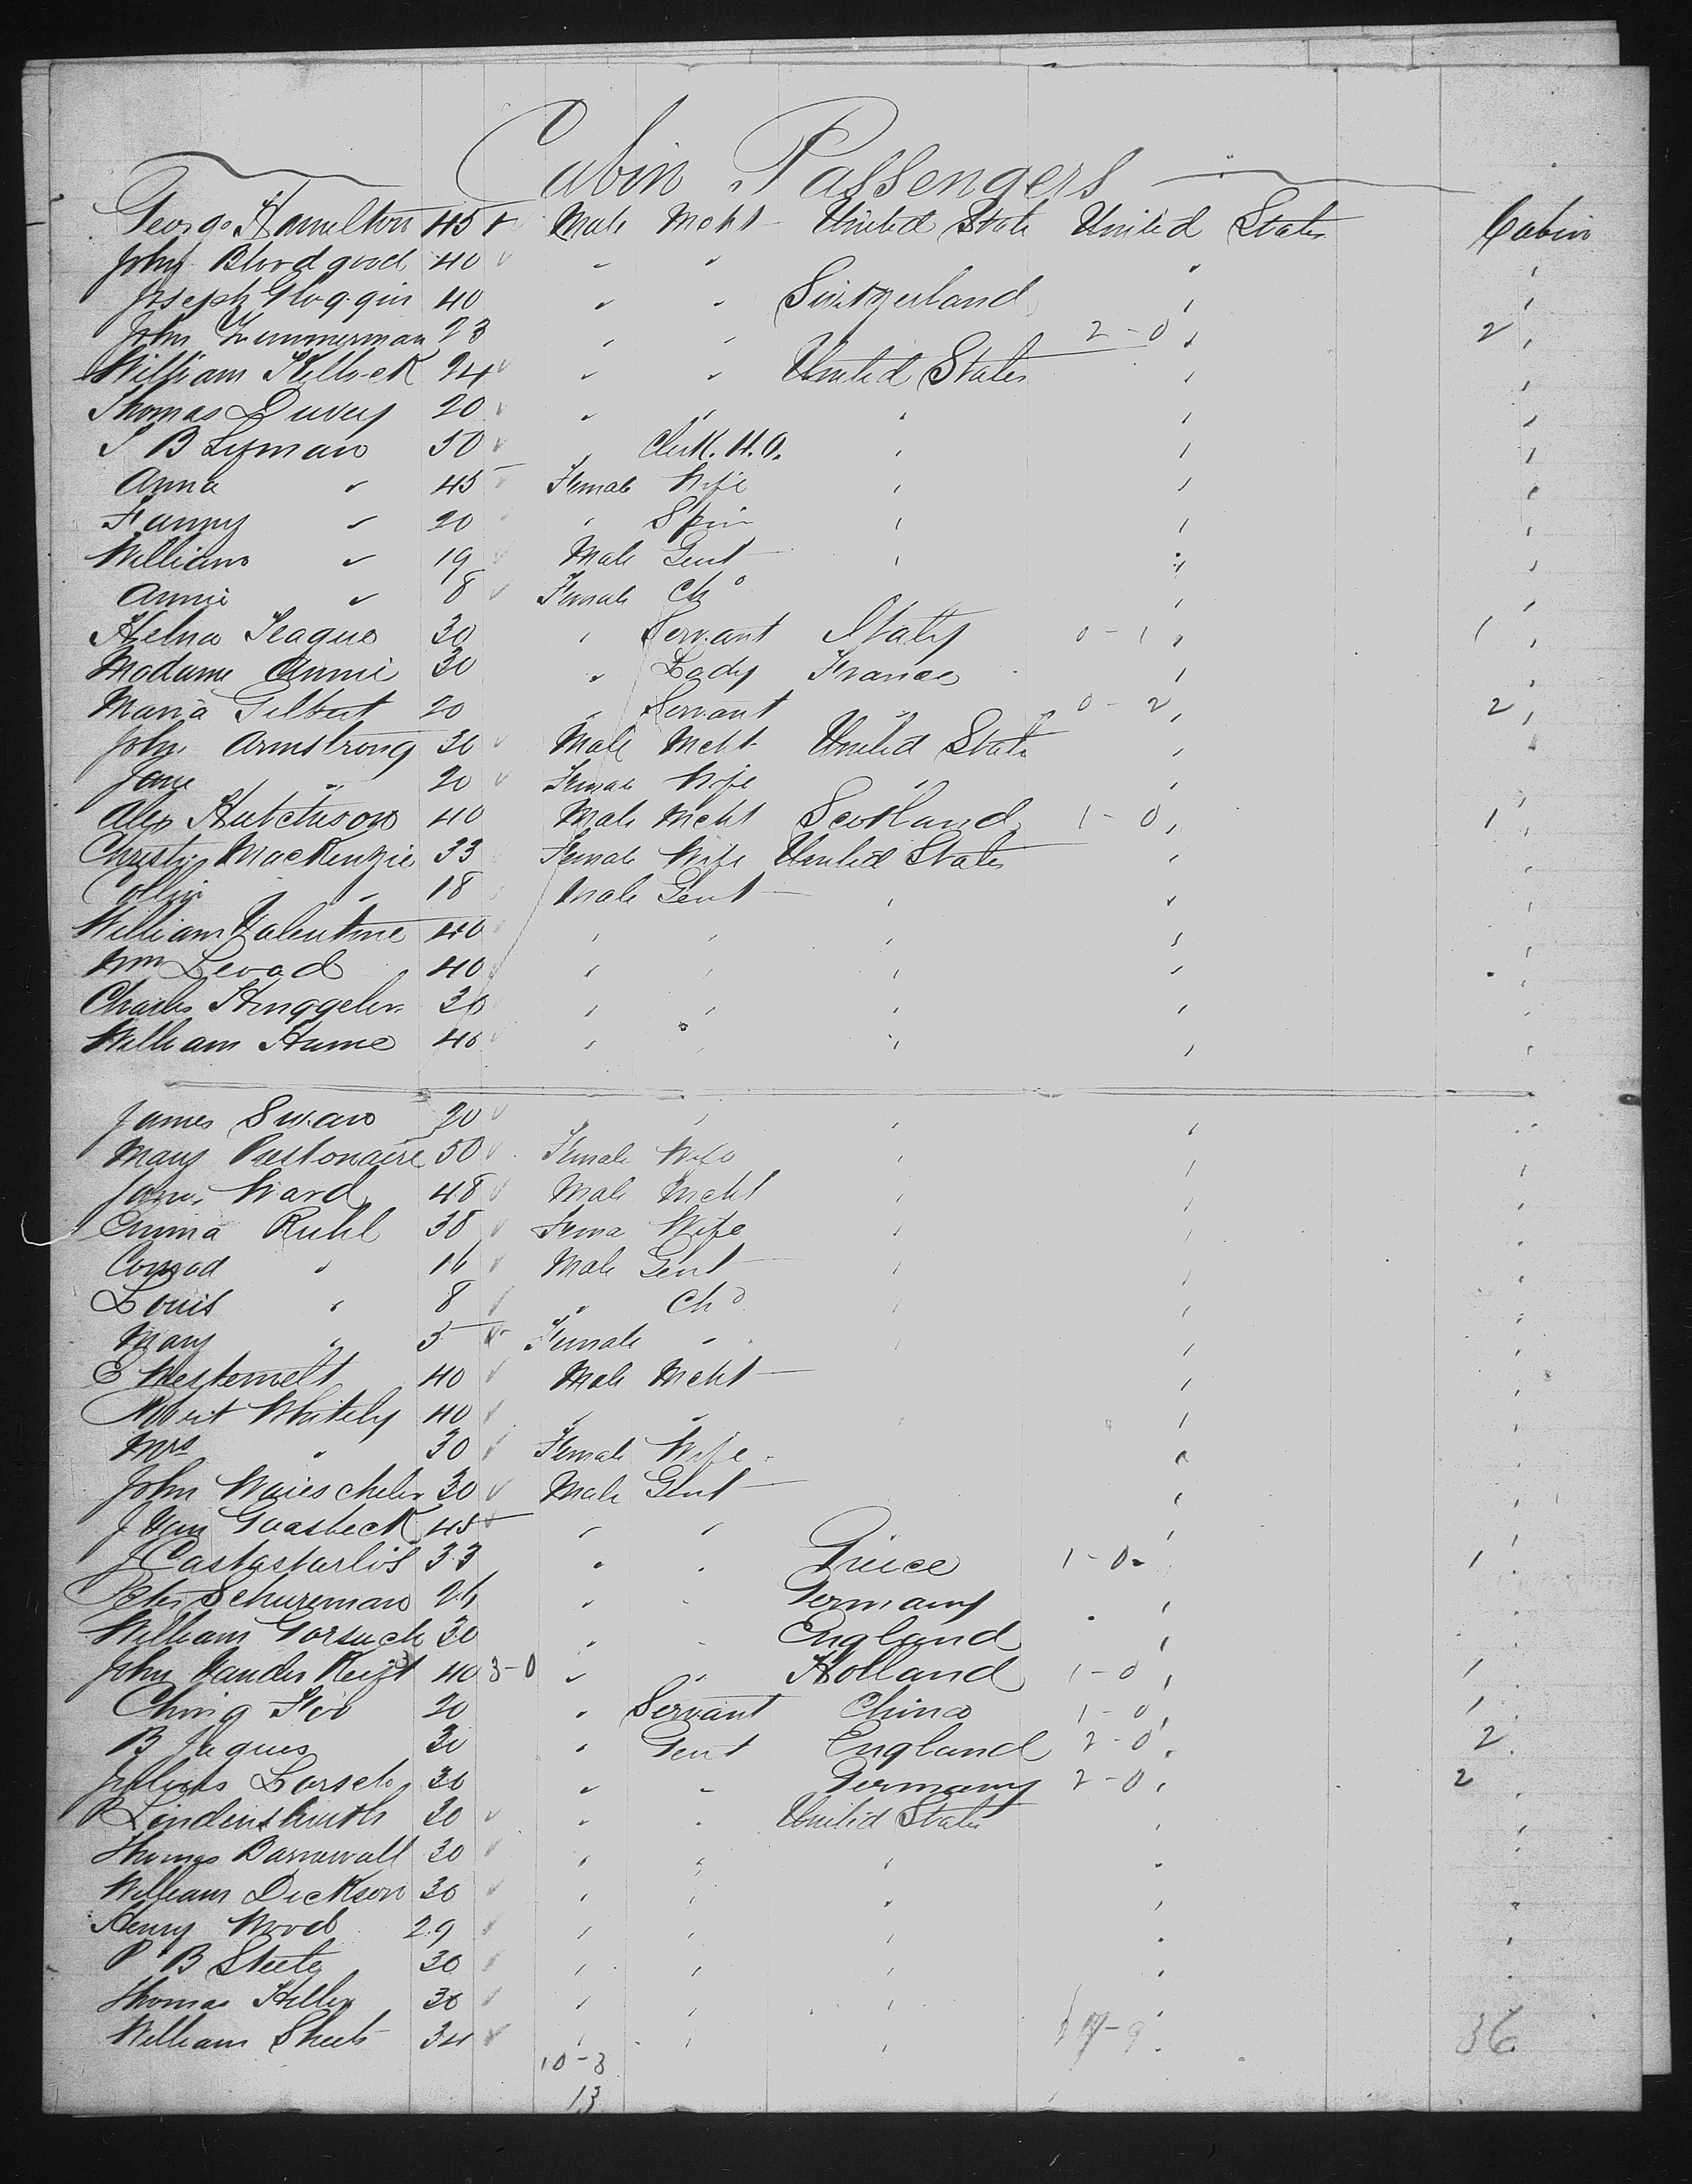 Cabin Passengers
George Hamelton 45 Male Mcht United State United States Cabin
John Bloodgood 40 " " " "
Joseph Gloggin 40 " " Switzerland " "
John Zimmerman 23 " " 2-0 " 2 "
William Kellock 24 " " United States " "
Thomas Duvey 20 " " " " "
S B Lyman 50 " Clerk. H.O. " " "
Anna " 45 Female Wife " " "
Fanny " 20 " Spin " " "
William " 19 Male Gent " " "
Annie " 8 Female Chd " "
Helna Teague 30 " Servant Italy 0-1 " 1 "
Madame Annie 30 " Lady France " "
Maria Gilbert 20 " Servant " 0-2 " 2 "
John Armstrong 30 Male Mcht United State " "
Jane " 20 Female Wife " " "
Alex Hutchison 40 Male Mcht Scotland 1-0 " 1 "
Christy MacKenzie 33 Female Wife United States " "
Collin " 18 Male Gent " " "
William Valentine 40 " " " " "
Wm Levad 40 " " " " "
Charles Hinggeler 30 " " " " "
William Hume 40 " " " " "
James Swan 20 " " " "
Mary 50 Female Wife " " "
James Ward 48 Male Mcht " " "
Emma Ruhl 38 Fema Wife " " "
Conrad " 16 Male Gent " " "
Louis " 8 " Chd " " "
Mary " 5 Female " " " "
E Westervelt 40 Male Mcht " "
Robert Whitely 40 " " " "
Mrs " 30 Female Wife " "
John 30 Male Gent " "
J Van Gaasbeck 45 " " " "
J 33 " " Greece 1-0 " 1 "
Peter Schureman 26 " " Germany " "
William Gorsuch 30 " " England " "
John Vander 40 3-0 " " Holland 1-0 " 1
Ching Foo 20 " Servant China 1-0 " 1
B Jaques 30 " Gent England 2-0 " 2
Julius Lorsch 30 " " Germany 2-0 " 2
30 " " United States " "
Thomas Barnwall 30 " " " " "
William Dickson 30 " " " " "
Henry Wood 29 " " " " "
P B Steele 30 " " " " "
Thomas 30 " " " "
William 34 " " " 36
10-3
13